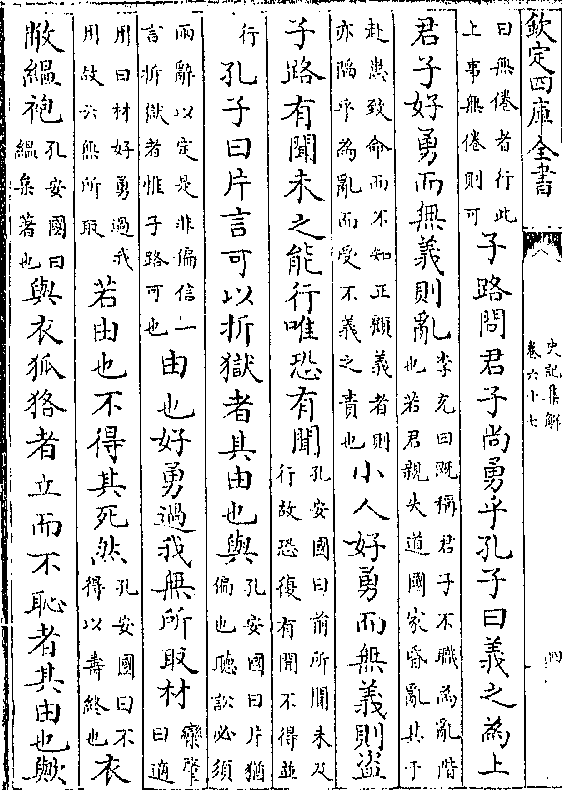 欽定四庫全書
史記集解
卷六十七
四
曰無倦者行此
上事無倦則可
子路問君子尚勇乎孔子曰義之為上
君子好勇而無義則亂
李充曰既稱君子不職為亂階
也若君親失道國家昏亂其于
赴患致命而不知正顧義者則
亦陷乎為亂而受不義之責也
小人好勇而無義則盜
子路有聞未之能行唯恐有聞
孔安國曰前所聞未及
行故恐復有聞不得並
行
孔子曰片言可以折獄者其由也與
孔安國曰片猶
偏也聽訟必須
兩辭以定是非偏信一
言折獄者惟子路可也
由也好勇過我無所取材
欒肇
曰適
用曰材好勇過我
用故云無所取
若由也不得其死然
孔安國曰不
得以壽終也
衣
敝縕袍
孔安國曰
縕枲著也
與衣狐狢者立而不恥者其由也歟